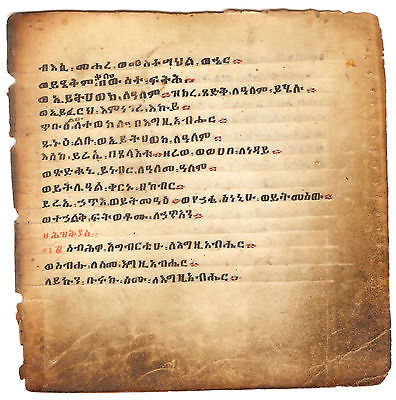 ብእሲ፡ መሐሪ፡ ወመስተሣህል፡ ወኄር
ቃሎ
በውስተ፡ ፍትሕ
ወኢይትሀወክ፡ ለዓለም፡ ዝክረ፡ ጻድቅ፡ ለዓለም፡ ይሄሉ
ወኢይፈርህ፡ እምነገር፡ እኩይ
ጥቡዕ፡ ለተወክሎ፡ በእግዚአብሔር
ጽኑዕ፡ ልቡ፡ ወኢይትሀወክ፡ ለዓለም
እስከ፡ ይሬኢ፡ በጸላእቱ፡ ዘረወ፡ ወወሀበ፡ ለነዳይ
ወጽድቁኒ፡ ይነብር፡ ለዓለመ፡ ዓለም
ወይትሌዓል፡ ቀርኑ፡ በክብር
ይሬኢ፡ ኃጥእ፡ ወይትመዓዕ፡ ወየሐቂ፡ ስነኒሁ፡ ወይትመሰው
ወተኃልቅ፡ ፍትወቶሙ፡ ለኃጥአን
ዘሕዝቅያስ፡
ሰብሕዎ፡ አግብርቲሁ፡ ለእግዚአብሔር
ወሰብሑ፡ ለስመ፡ እግዚአብሔር
ለይኩን፡ ቡሩክ፡ ስሙ፡ ለእግዚአብሔር